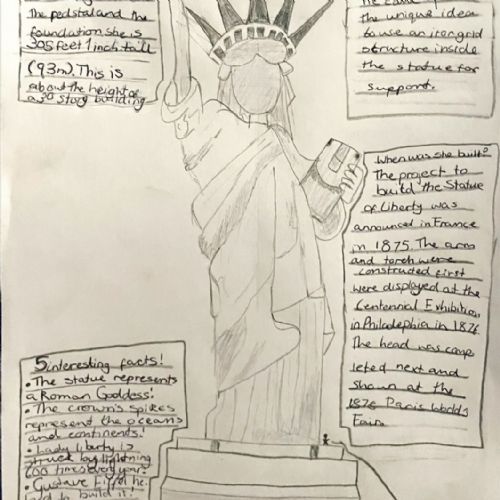 the pedstal and the
foundation she is
305 feet 1 inch tall
(93m). This is
about the height of
a 30 story building
the unique idea
to use an iron grid
structure inside
the statue for
support.
When was she built?
The project to
build the Statue
of Liberty was
announced in France
in 1875. The arm
and torch were
constructed first
were displayed at the
Centennial Exhibition
in Philadelphia in 1876.
The head was comp
leted next and
shown at the
1878 Paris Worlds
Fair.
5 interesting facts!
• The statue represents
a Roman Goddess.
• The crown's spikes
represent the oceans
and continents!
• Lady liberty is
struck by lightning
600 times every year.
• Gustave Eiffel he